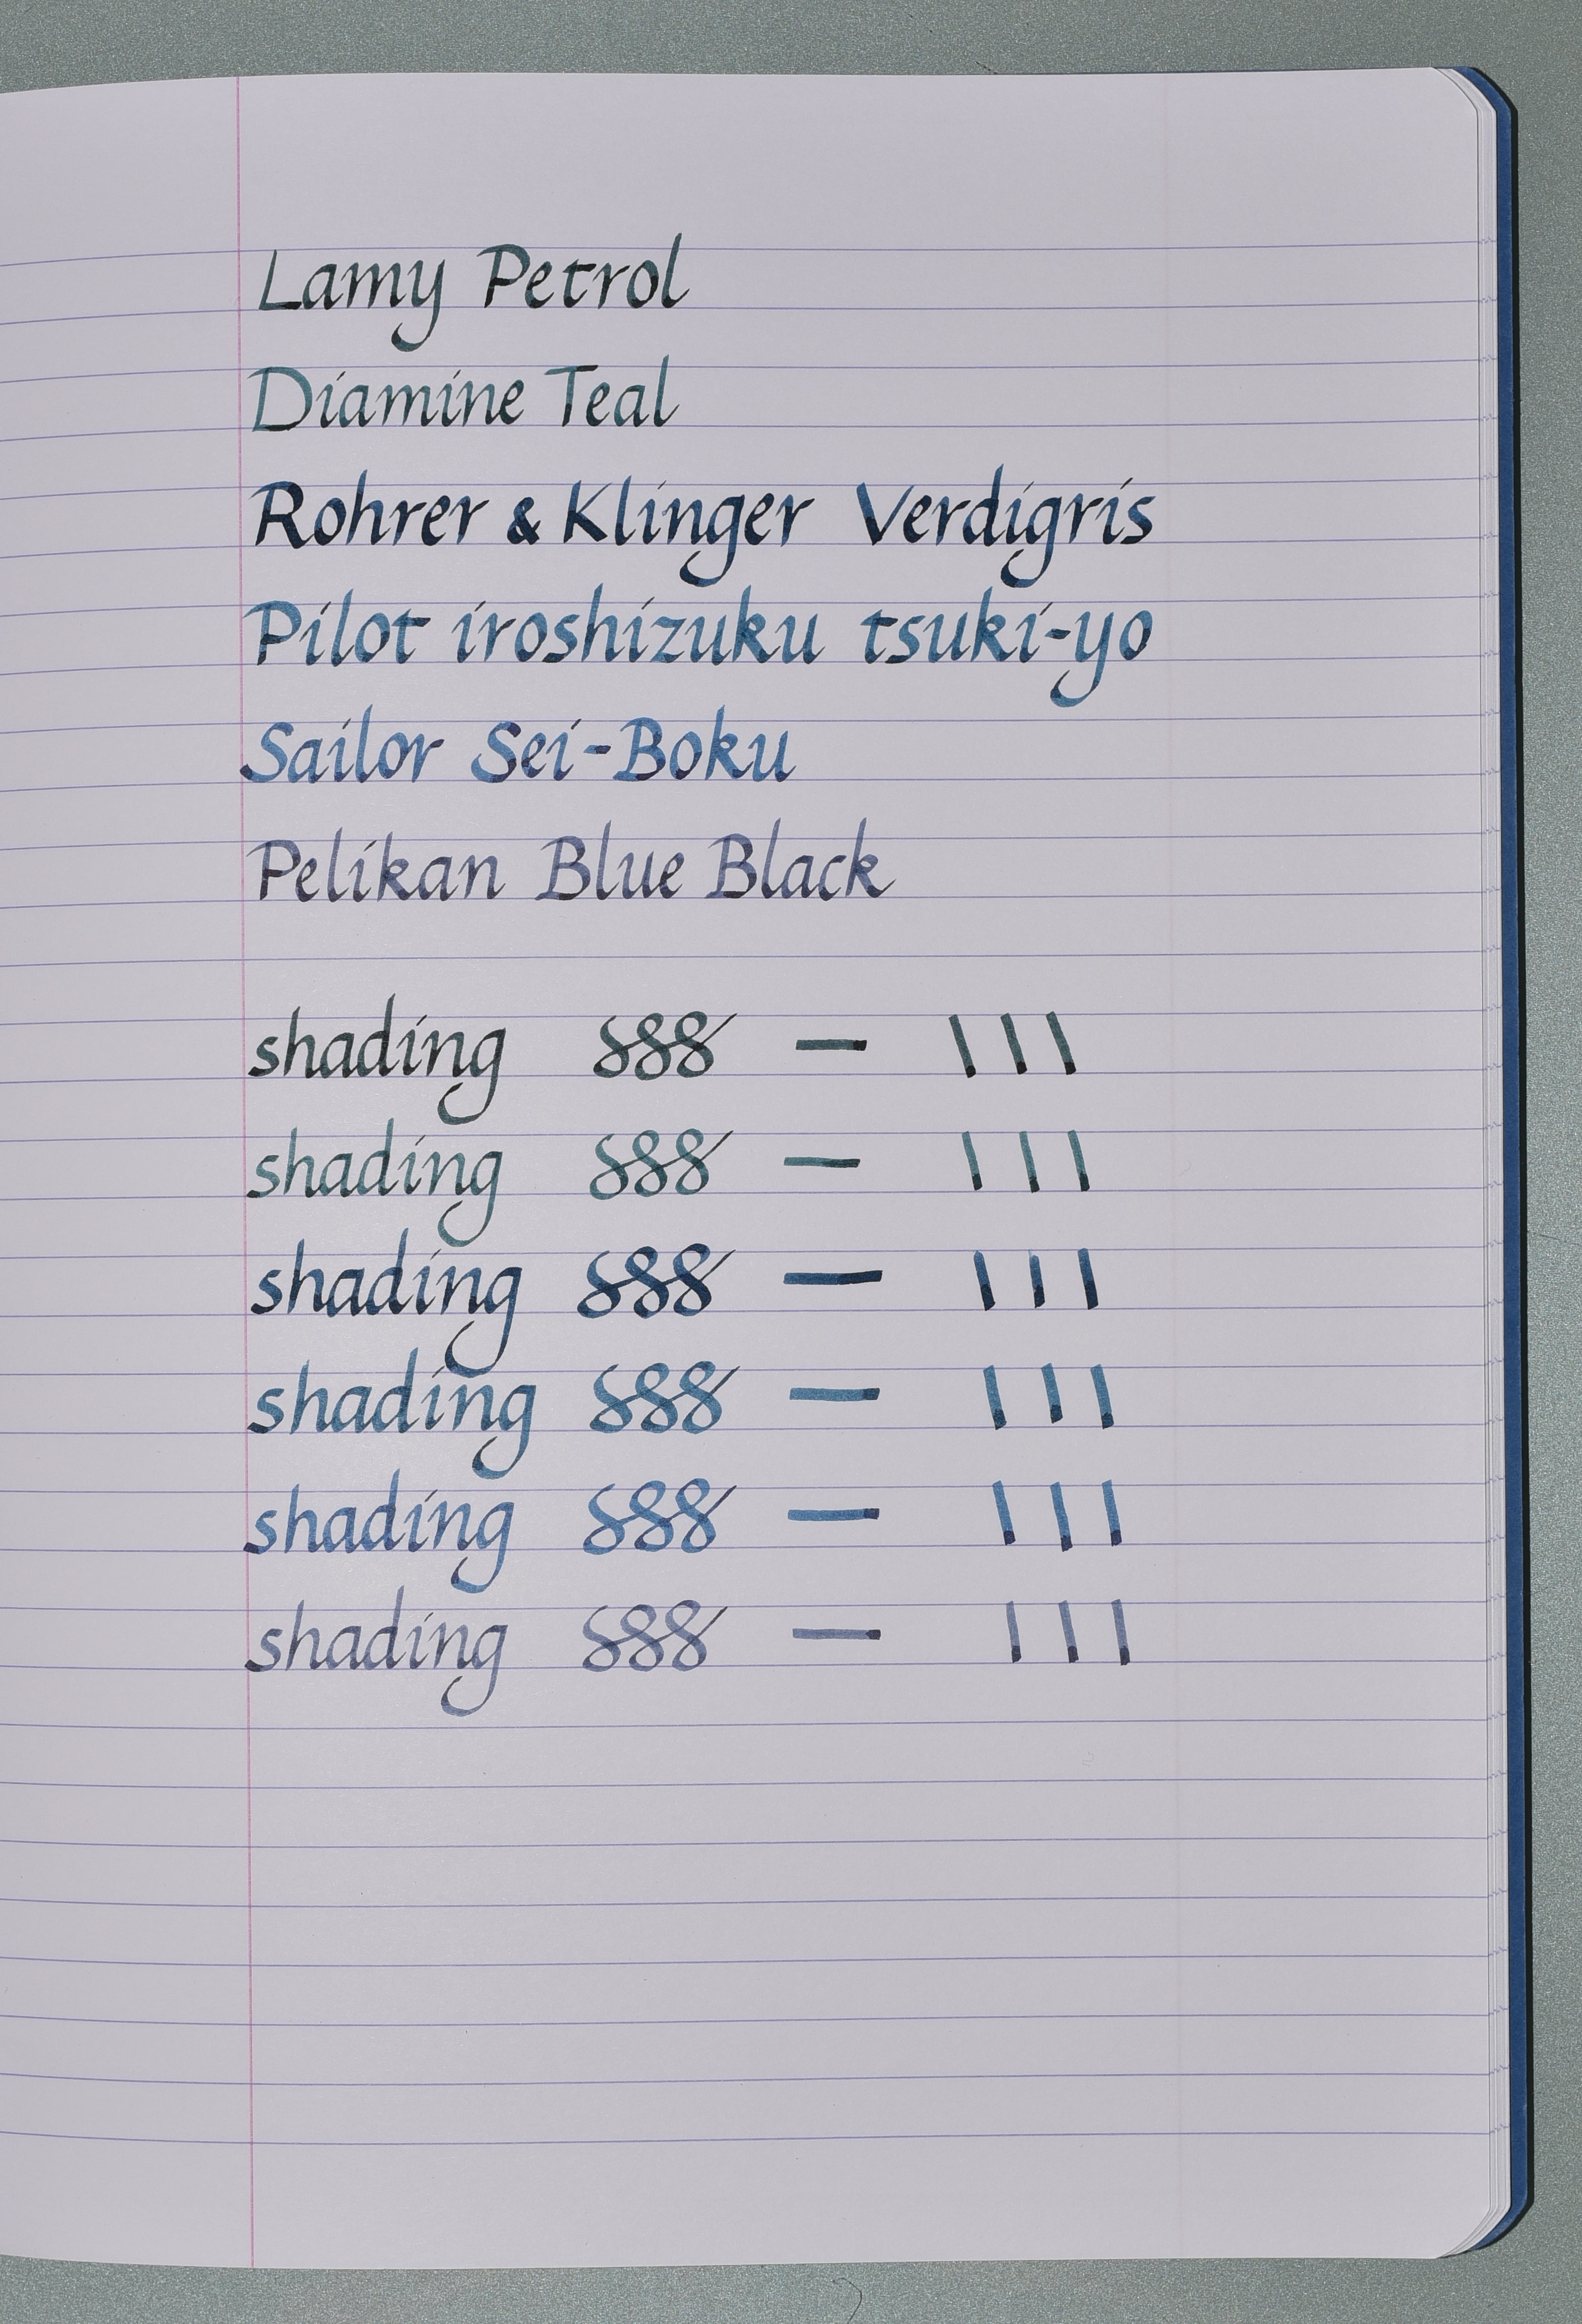 Lamy Petrol
Diamine Teal
Rohrer & Klinger Verdigris
Pilot iroshizuku tsuki-yo
Sailor Sei-Boku
Pelikan Blue Black
shading 888 — | | |
shading 888 — | | |
shading 888 — | | |
shading 888 — | | |
shading 888 — | | |
shading 888 — | | |